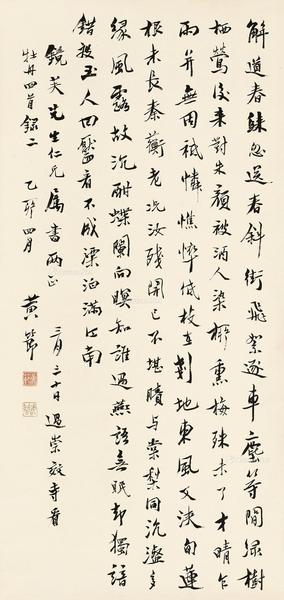 解道春穌忽送春斜街飛絮逐車塵等閒綠樹
栖鶯後來對朱顏被酒人染柳熏梅殊未了才晴乍
雨并無因祗憐憔悴低枝在剗地東風又浹旬蓮
根未長秦蘅老況汝殘開已不堪賸與棠梨同沆瀣多
緣風露故沉酣蝶闌向暝知誰過燕語無眠却獨諳
錯投玉人看不成漂泊滿江南
鏡芙先生仁兄屬書兩正 三月三十日過崇效寺看
牡丹四首錄二 乙亥四月 黃節